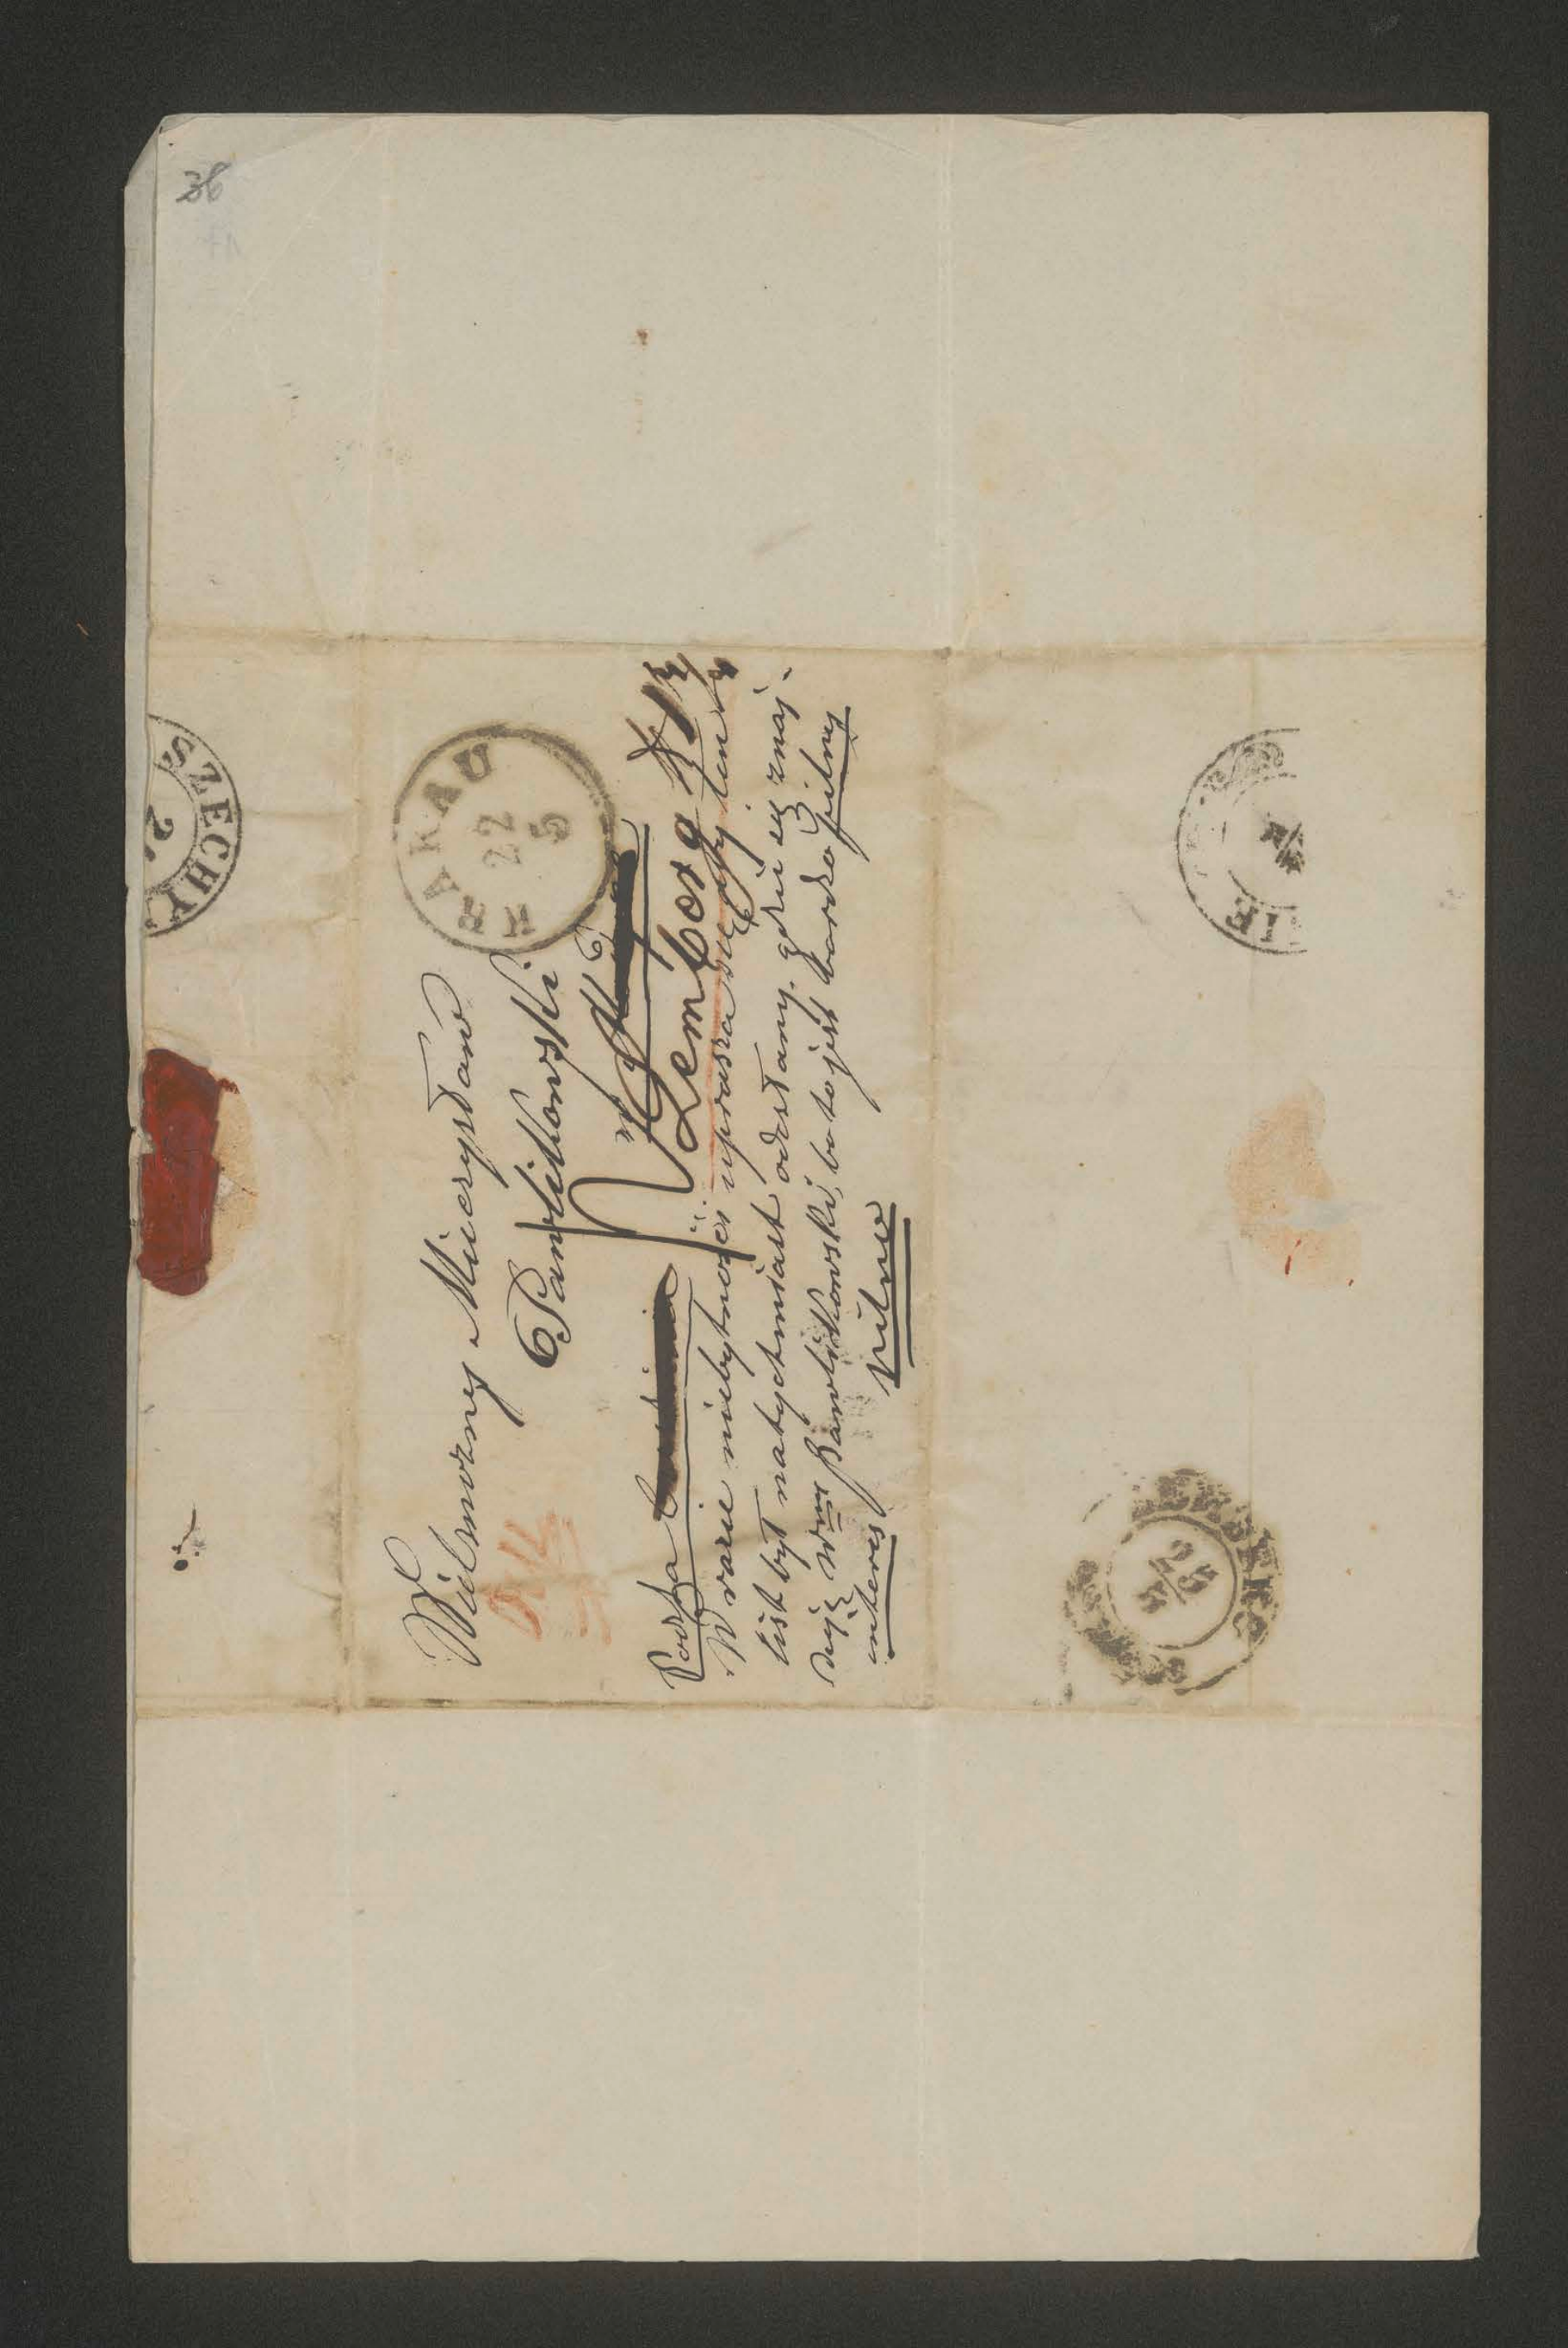 36
SZECHY
2
KRAKAU
22
5
Wielmożny Mieczysław
Pawlikowski
w
Lemberg
Poczta
W razie niebytności uprasza się aby ten
list był natychmiast odesłany, gdzie się znaj-
duje Wny Pawlikowski, bo to jest bardzo pilny
interes
pilno
LEMBERG
25
5
IE